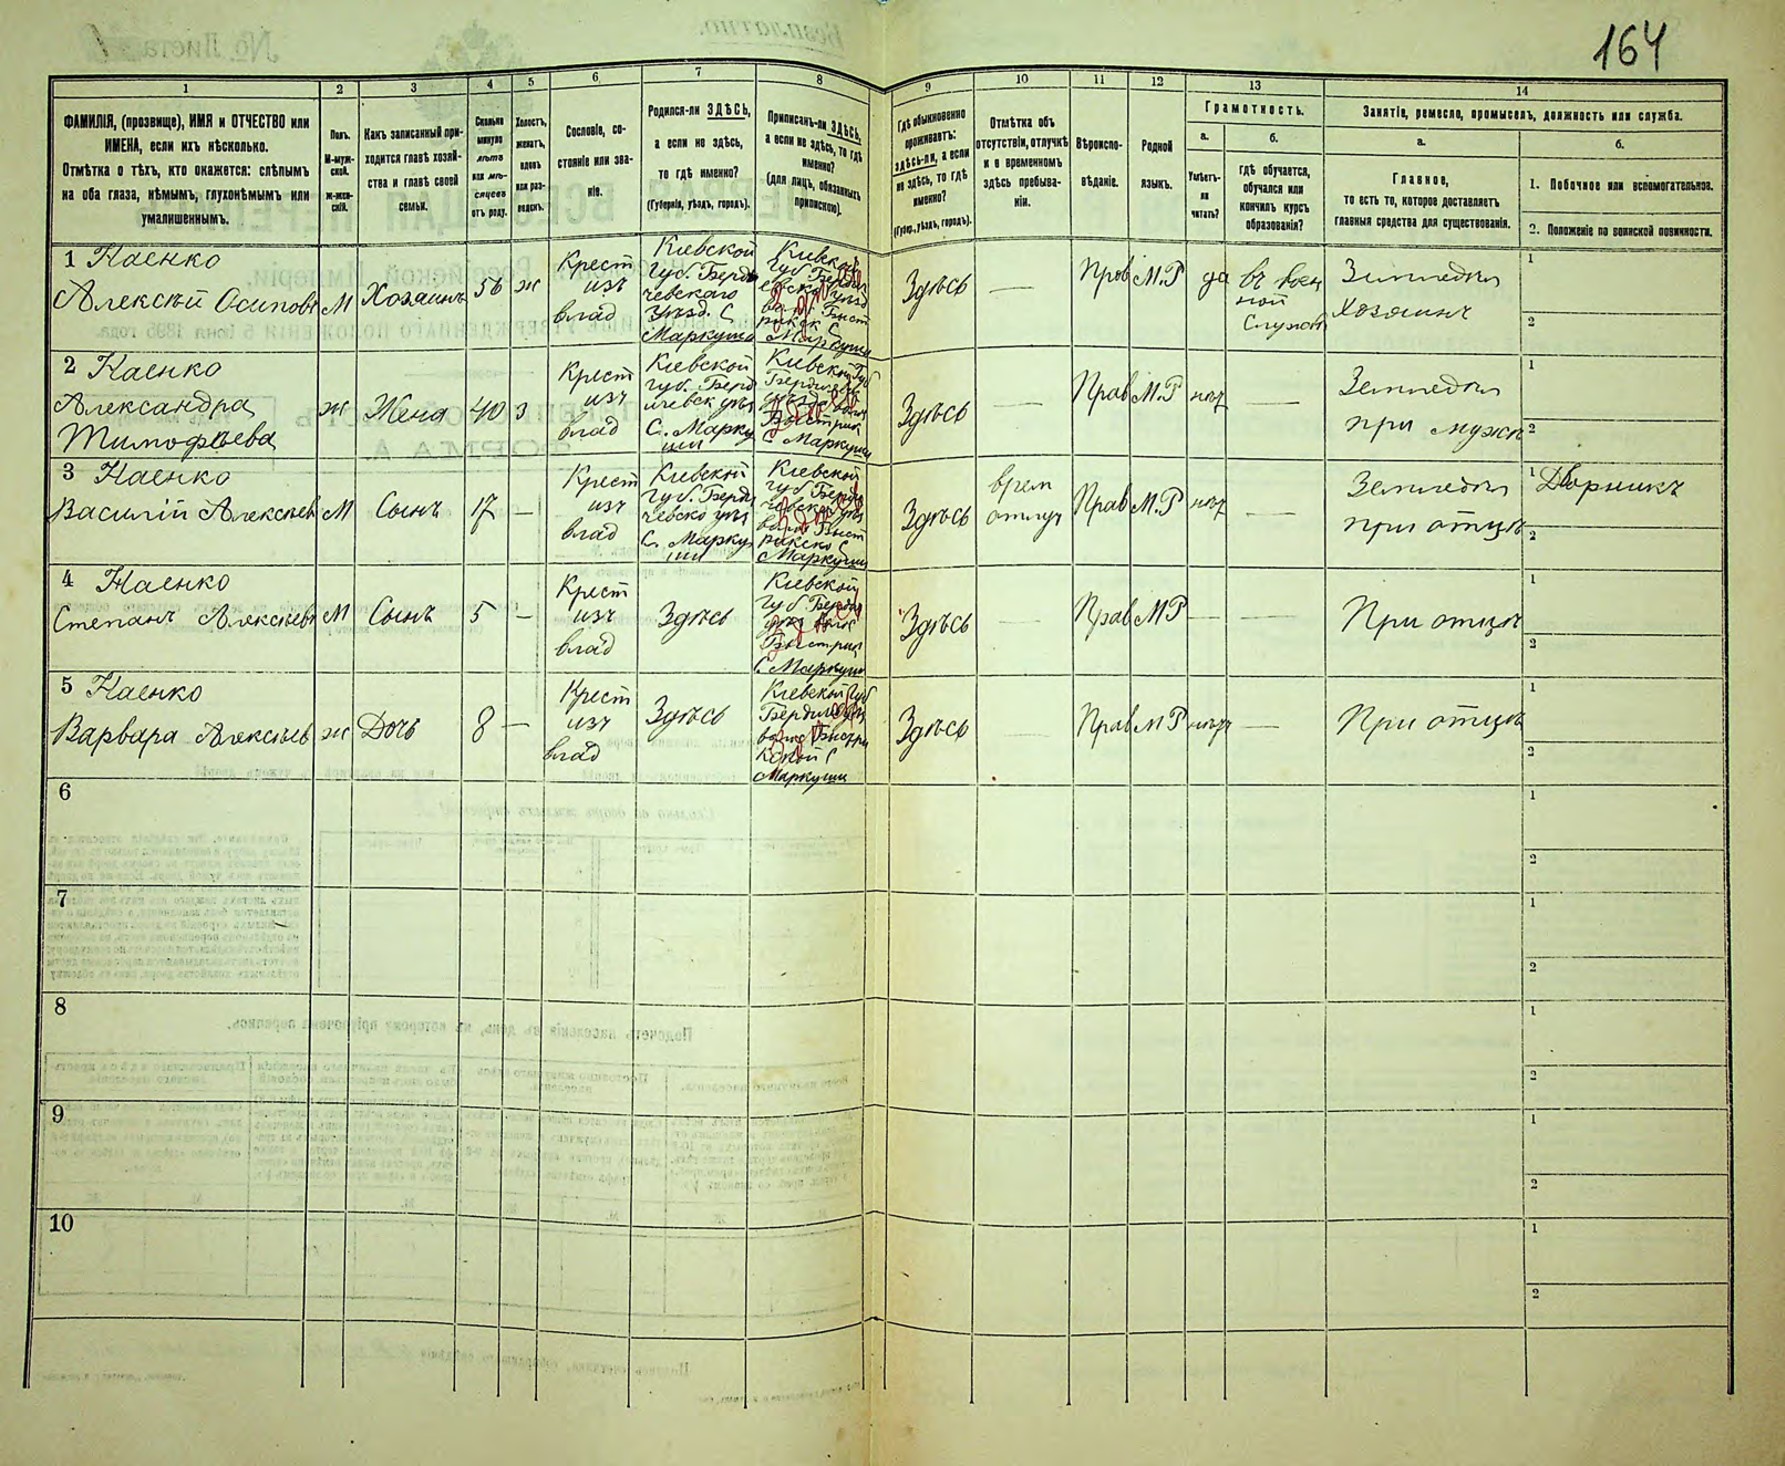 164
1
2
3
4
5
6
7
8
9
10
11
12
13
14
ФАМИЛІЯ, (прозвище), ИМЯ и ОТЧЕСТВО или
ИМЕНА, если ихъ нѣсколько.
Отмѣтка о тѣхъ, кто окажется: слѣпымъ
на оба глаза, нѣмымъ, глухонѣмымъ или
умалишеннымъ.
Полъ.
М-муж-
ской.
ж-жен-
скій.
Какъ записанный при-
ходится главѣ хозяй-
ства и главѣ своей
семьи.
Сколько
минуло
лѣтъ
или мѣ-
сяцевъ
отъ роду.
Холостъ,
женатъ,
вдовъ
или раз-
веденъ.
Сословіе, со-
стояніе или зва-
ніе.
Родился-ли ЗДѢСЬ,
а если не здѣсь,
то гдѣ именно?
(Губернія, уѣздъ, городъ).
Приписанъ-ли ЗДѢСЬ,
а если не здѣсь, то гдѣ
именно?
(для лицъ, обязанныхъ
припискою).
Гдѣ обыкновенно
проживаетъ:
здѣсь-ли, а если
не здѣсь, то гдѣ
именно?
(Губер., уѣздъ, городъ).
Отмѣтка объ
отсутствіи, отлучкѣ
и о временномъ
здѣсь пребыва-
ніи.
Вѣроиспо-
вѣданіе.
Родной
языкъ.
Грамотность.
а.
б.
Умѣетъ-
ли
читать?
гдѣ обучается,
обучался или
кончилъ курсъ
образованія?
Занятіе, ремесло, промыселъ, должность или служба.
а.
б.
Главное,
то есть то, которое доставляетъ
главныя средства для существованія.
1. Побочное или вспомогательное.
2. Положеніе по воинской повинности.
1 Наенко
Алексѣй Осиповъ
М
Хозяинъ
56
ж
Крест
изъ
влад
Кіевской
губ. Берди
чевскаго
уѣзд. С
Маркуши
Здѣсь
—
Прав
М.Р
да
въ воен
ной
Служб
Земледѣл
Хозяинъ
1
2
2 Наенко
Александра
Тимофѣева
ж
Жена
40
з
Крест
изъ
влад
Кіевской
губ. Берд
ичевск уѣз
С. Марку
ши
Здѣсь
—
Прав
М.Р
нѣт
—
Земледѣл
при мужѣ
1
2
3 Наенко
Василій Алексѣев
М
Сынъ
17
—
Крест
изъ
влад
Кіевской
губ. Берди
чевско уѣз
С. Марку
ши
Здѣсь
врем
отлуч
Прав
М.Р
нѣт
—
Земледѣл
при отцѣ
1 Дворникъ
2
4 Наенко
Степанъ Алексѣевъ
М
Сынъ
5
—
Крест
изъ
влад
Здѣсь
Кіевской
С. Маркуши
Здѣсь
—
Прав
МР
—
—
При отцѣ
1
2
5 Наенко
Варвара Алексѣев
ж
Дочь
8
—
Крест
изъ
влад
Здѣсь
Кіевской Губ
Маркуши
Здѣсь
—
Прав
МР
нѣт
—
При отцѣ
1
2
6
1
2
7
1
2
8
1
2
9
1
2
10
1
2